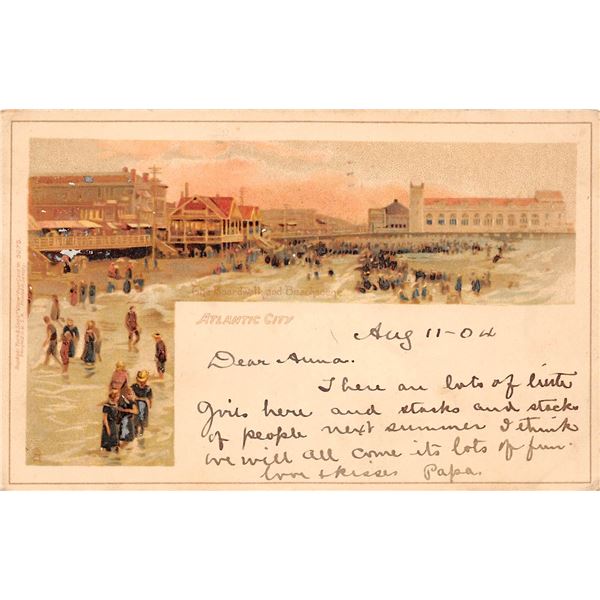 The Boardwalk and Beach
ATLANTIC CITY
Aug 11-04
Dear Anna.
There are lots of
Girls here and stacks and stacks
of people next summer I think
we will all come its lots of fun.
love & kisses Papa.